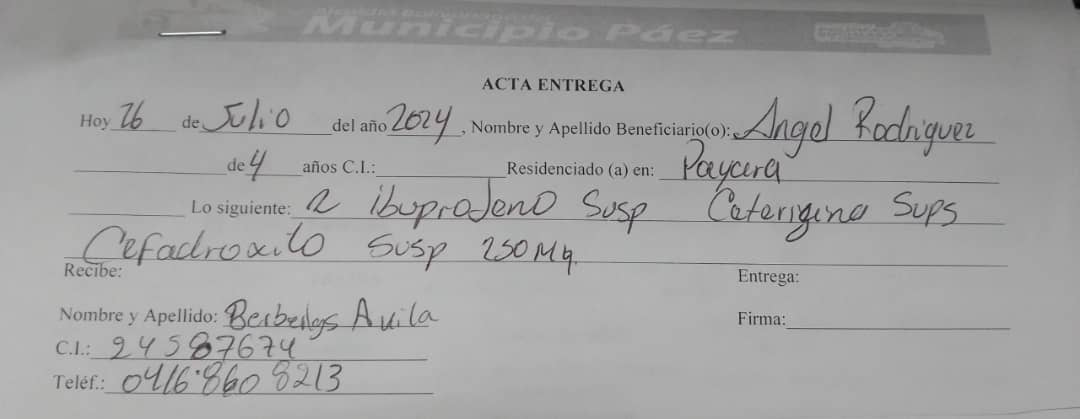 Alcaldía Bolivariana del
Municipio Páez
ACTA ENTREGA
Hoy 26 de Julio del año 2024, Nombre y Apellido Beneficiario(o): Angel Rodriguez
de 4 años C.I.: Residenciado (a) en: Paycara
Lo siguiente: 2 ibuprofeno Susp Caterigeno Sups
Cefadroxilo Susp 250 Mg.
Recibe: Entrega:
Nombre y Apellido: Berbelys Avila Firma:
C.I.: 24587674
Teléf.: 0416.8608213